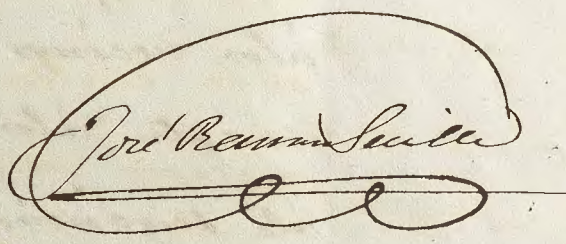 José Ramón Sevilla